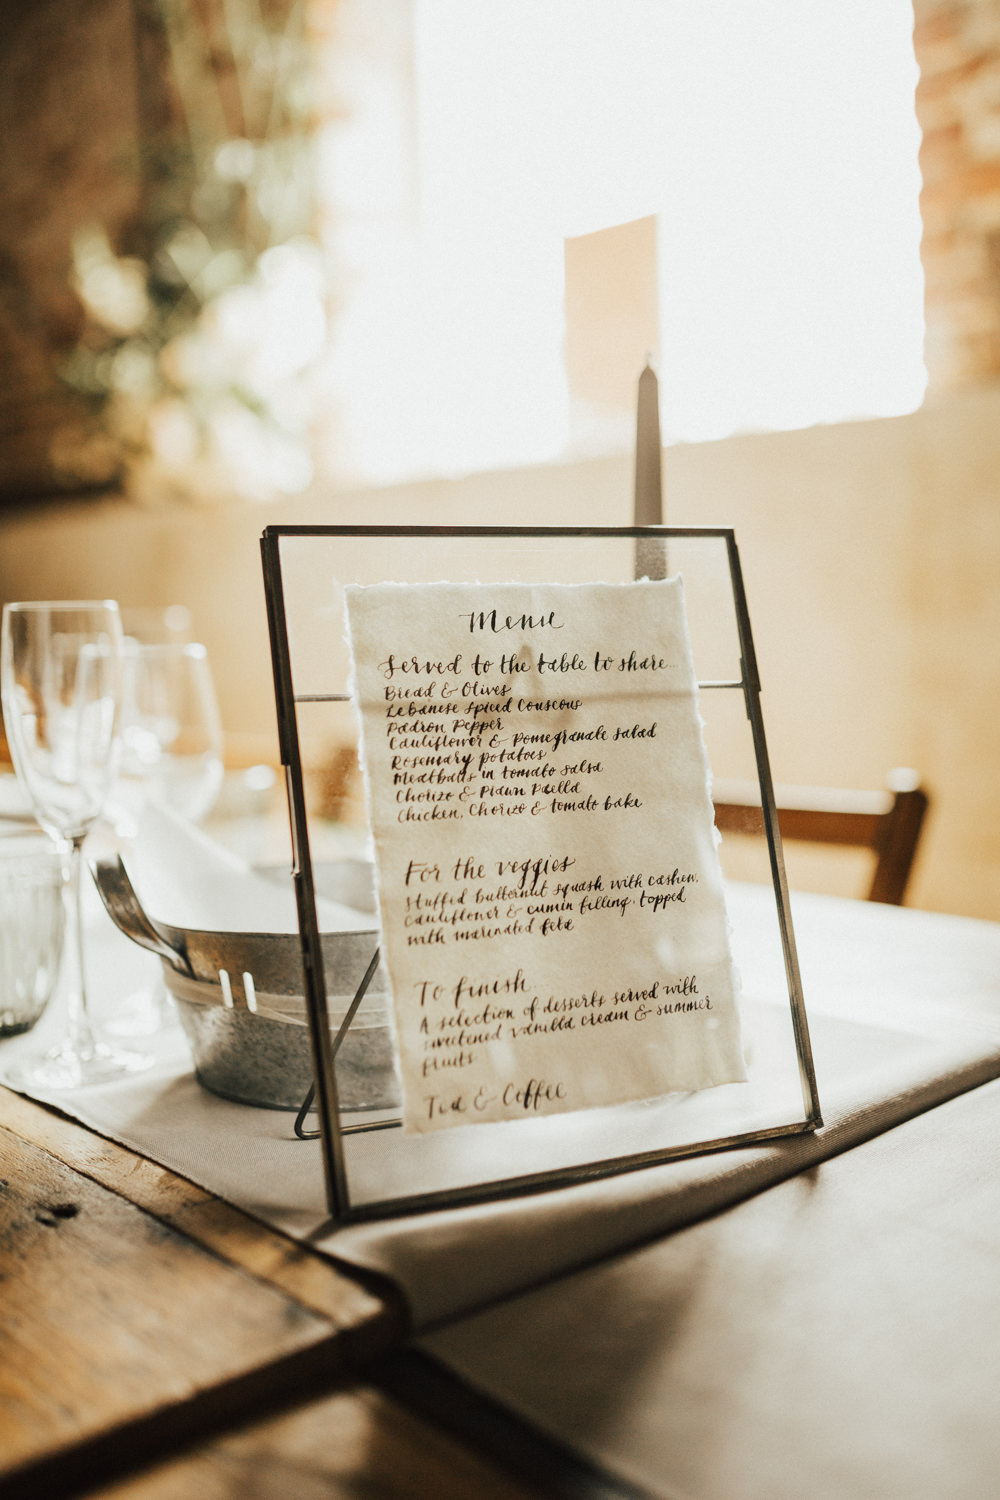 Menu
Served to the table to share...
Bread & Olives
Lebanese spiced Couscous
Padron Pepper
Cauliflower & Pomegranate salad
Rosemary potatoes
Meatballs in tomato salsa
Chorizo & Prawn Paella
Chicken, Chorizo & tomato bake
For the veggies
stuffed butternut squash with cashew,
cauliflower & cumin filling, topped
with marinated feta
To finish...
A selection of desserts served with
sweetened vanilla cream & summer
fruits
Tea & Coffee